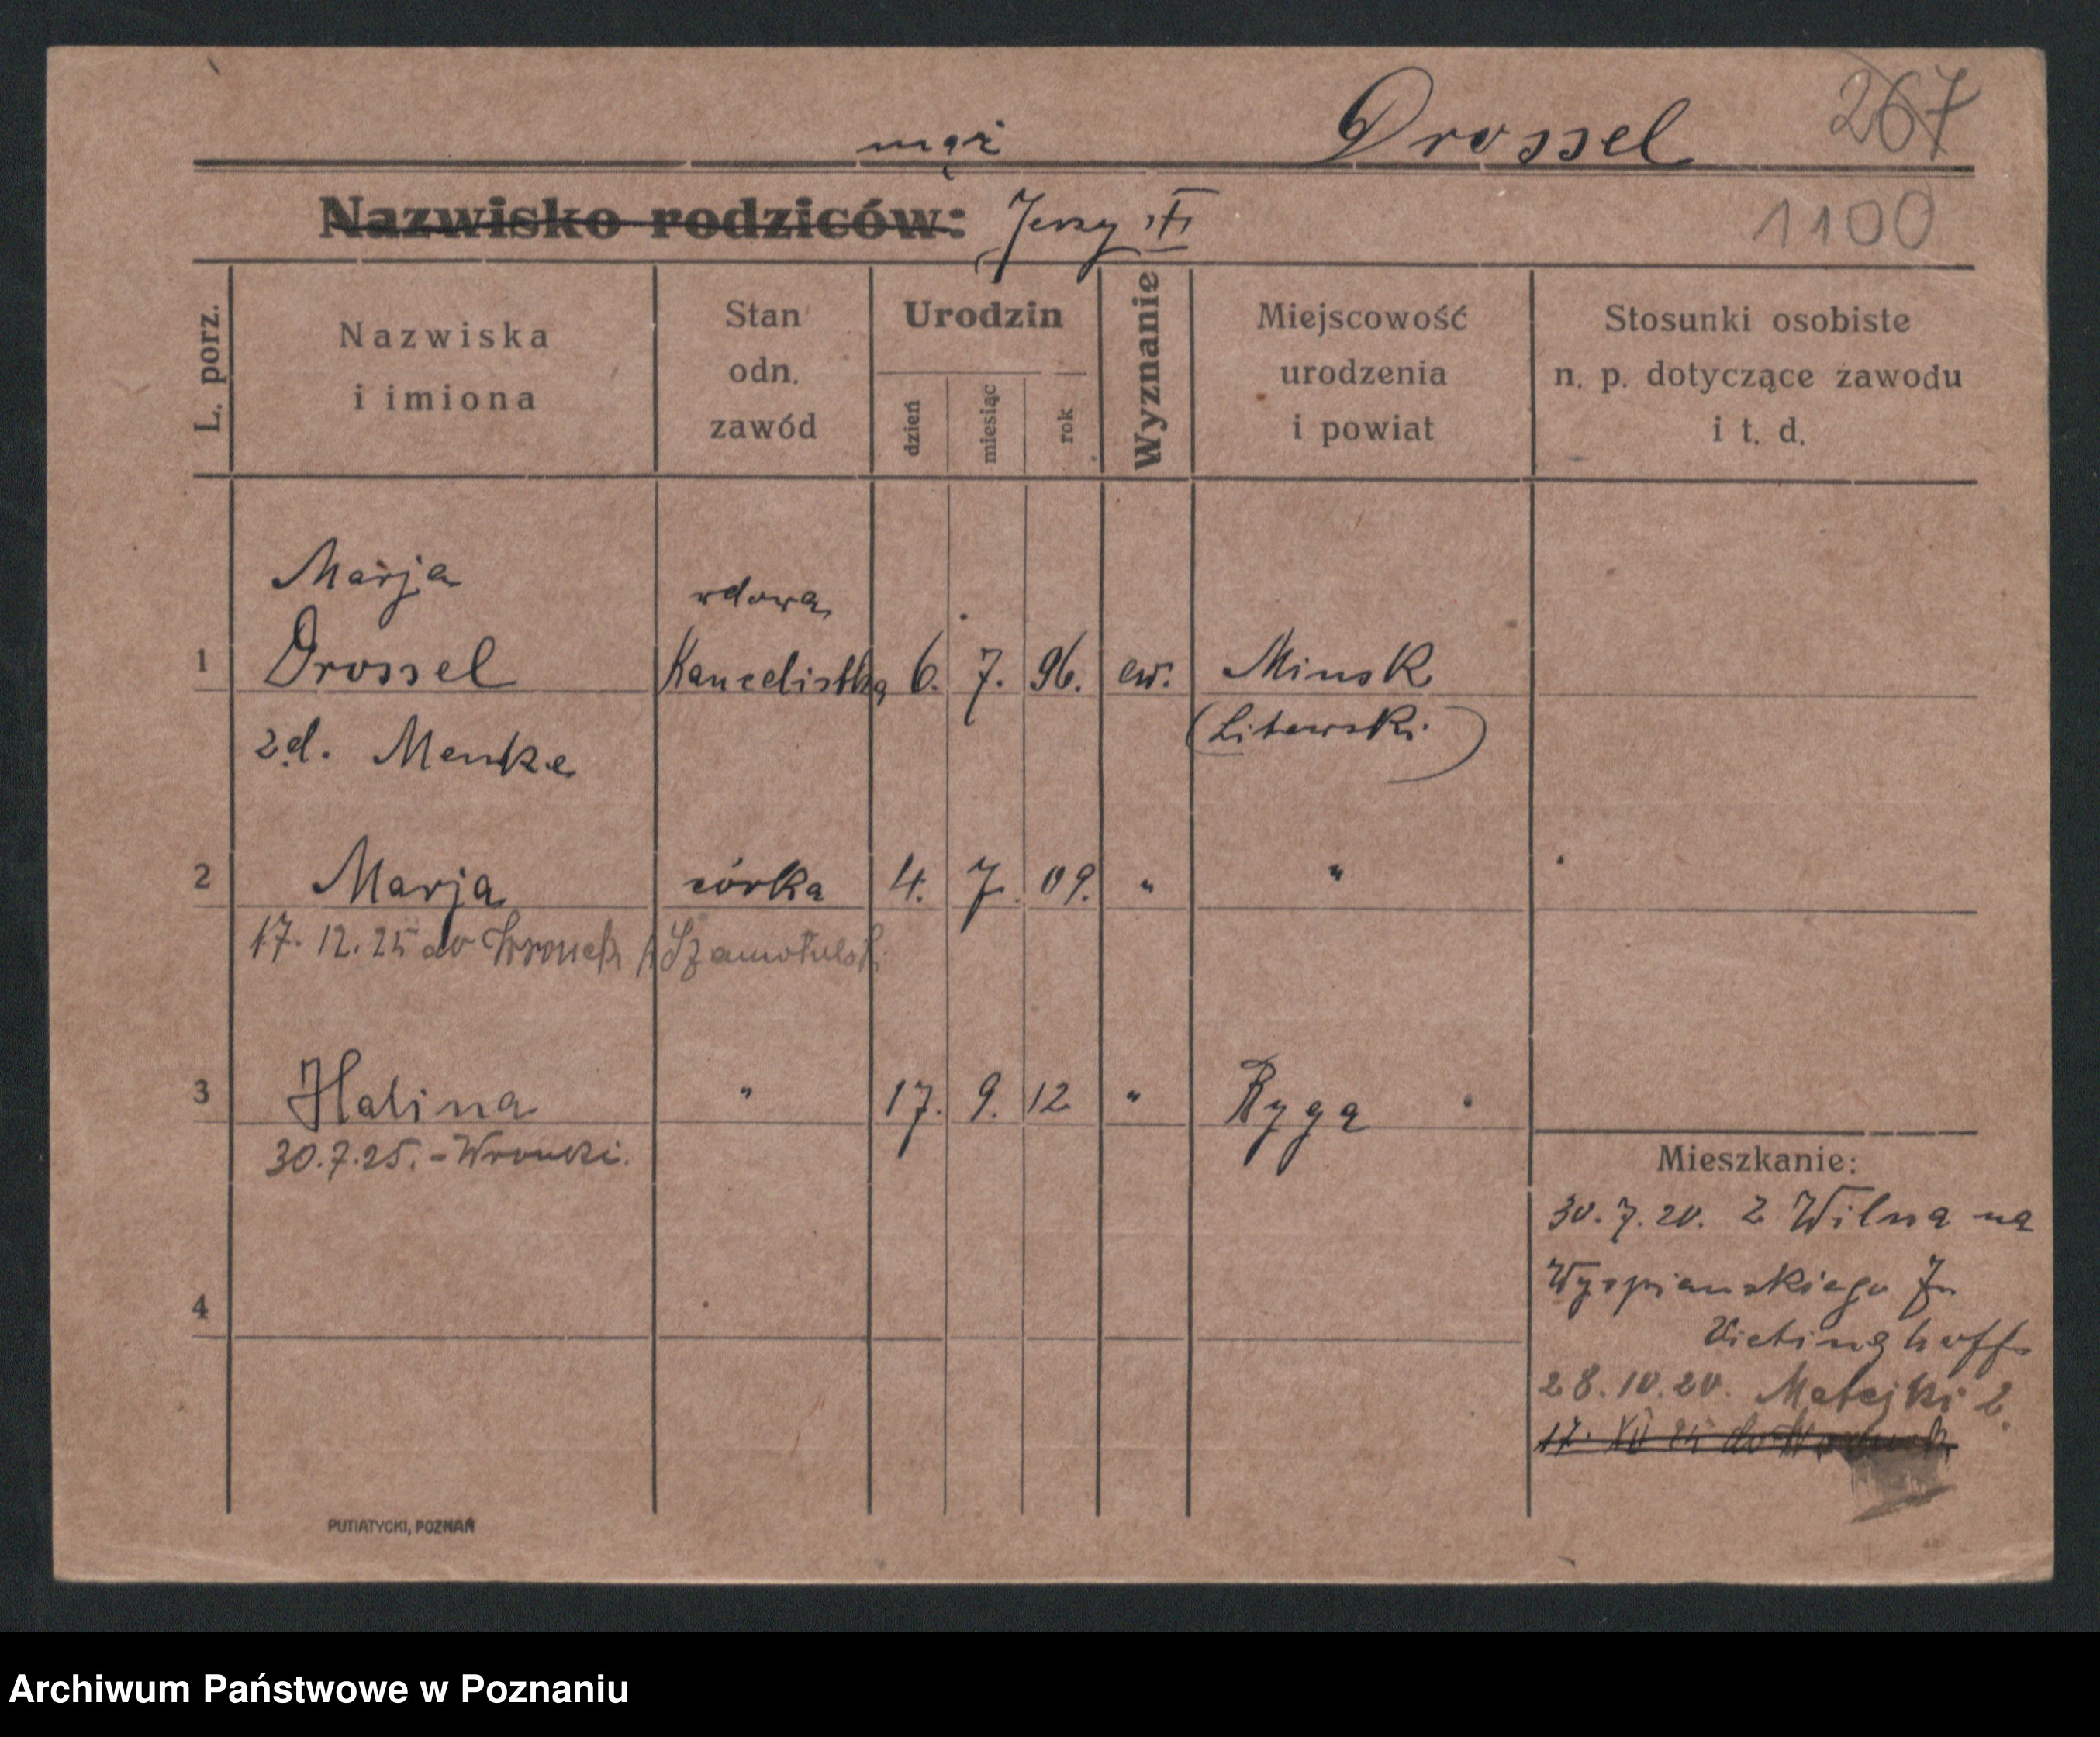 mąż Drossel 267
Nazwisko rodziców: Jerzy 1100
L. porz.
Nazwiska
i imiona
Stan
odn.
zawód
Urodzin
dzień
miesiąc
rok
Wyznanie
Miejscowość
urodzenia
i powiat
Stosunki osobiste
n. p. dotyczące zawodu
i t. d.
Marja
wdowa
1 Drossel Kancelistka 6. 7. 96. ew. Minsk
(Litewski)
zd. Menke
2 Marja córka 4. 7. 09. " "
17. 12. 25 do Wronek p Szamotulski
3 Halina " 17. 9. 12 " Ryga
30.7.25. - Wronki.
Mieszkanie:
30. 7. 20. z Wilna na
Wyspianskiego 7
Vietinghoff
28. 10. 20. Matejki 2.
17. XII 25 do
4
PUTIATYCKI, POZNAŃ
Archiwum Państwowe w Poznaniu